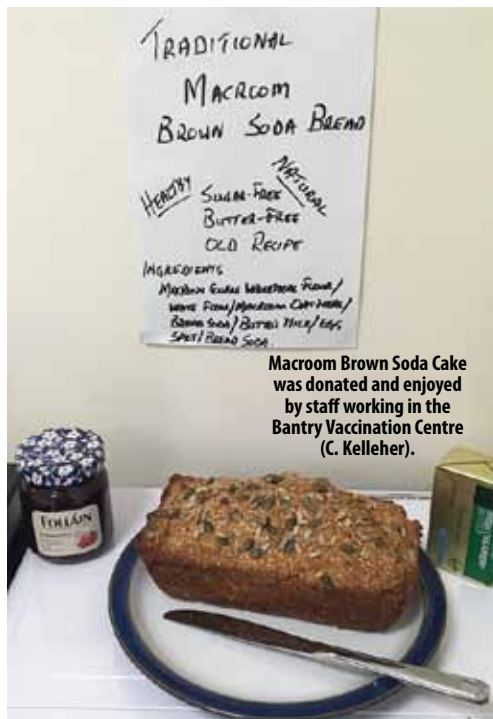 TRADITIONAL
MACROOM
BROWN SODA BREAD
HEALTHY
NATURAL
SUGAR-FREE
BUTTER-FREE
OLD RECIPE
INGREDIENTS
WHOLEMEAL FLOUR/
WHITE FLOUR/MACROOM OATMEAL/
BREAD SODA/BUTTER MILK/EGG
SALT/BREAD SODA.
Macroom Brown Soda Cake
was donated and enjoyed
by staff working in the
Bantry Vaccination Centre
(C. Kelleher).
FOLLÁIN